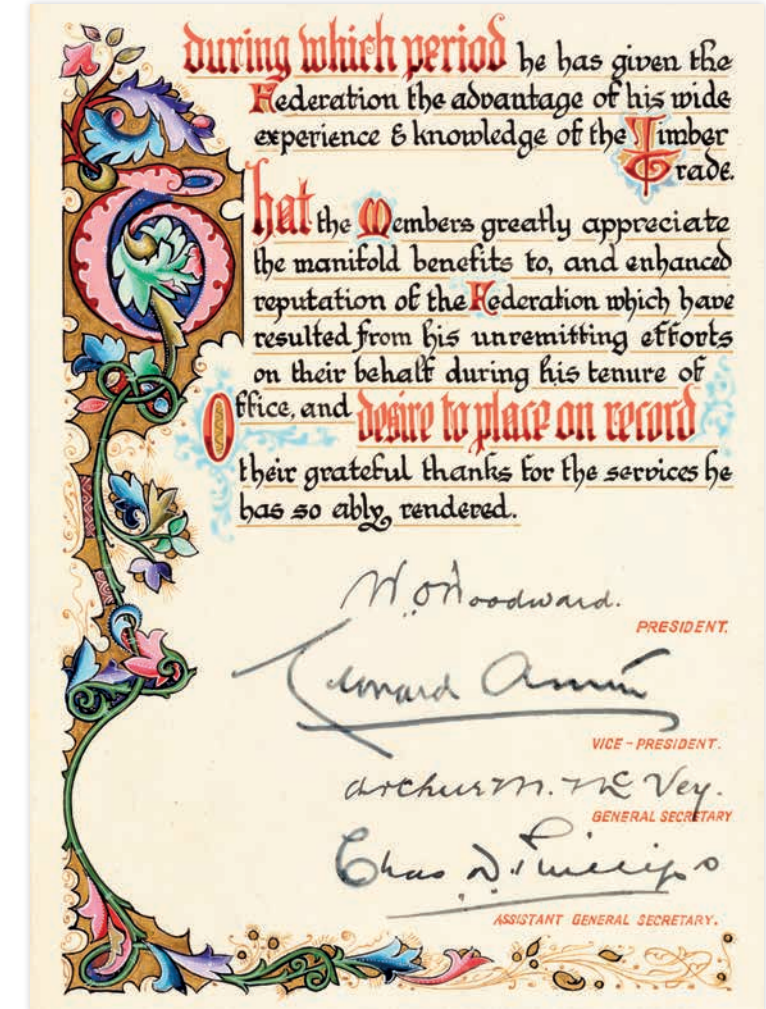 during which period he has given the
Federation the advantage of his wide
experience & knowledge of the Timber
Trade.
That the Members greatly appreciate
the manifold benefits to, and enhanced
reputation of the Federation which have
resulted from his unremitting efforts
on their behalf during his tenure of
Office, and desire to place on record
their grateful thanks for the services he
has so ably rendered.
W. O Woodward.
PRESIDENT.
Leonard
VICE-PRESIDENT.
Arthur M. McVey.
GENERAL SECRETARY
Chas D. Phillips
ASSISTANT GENERAL SECRETARY.